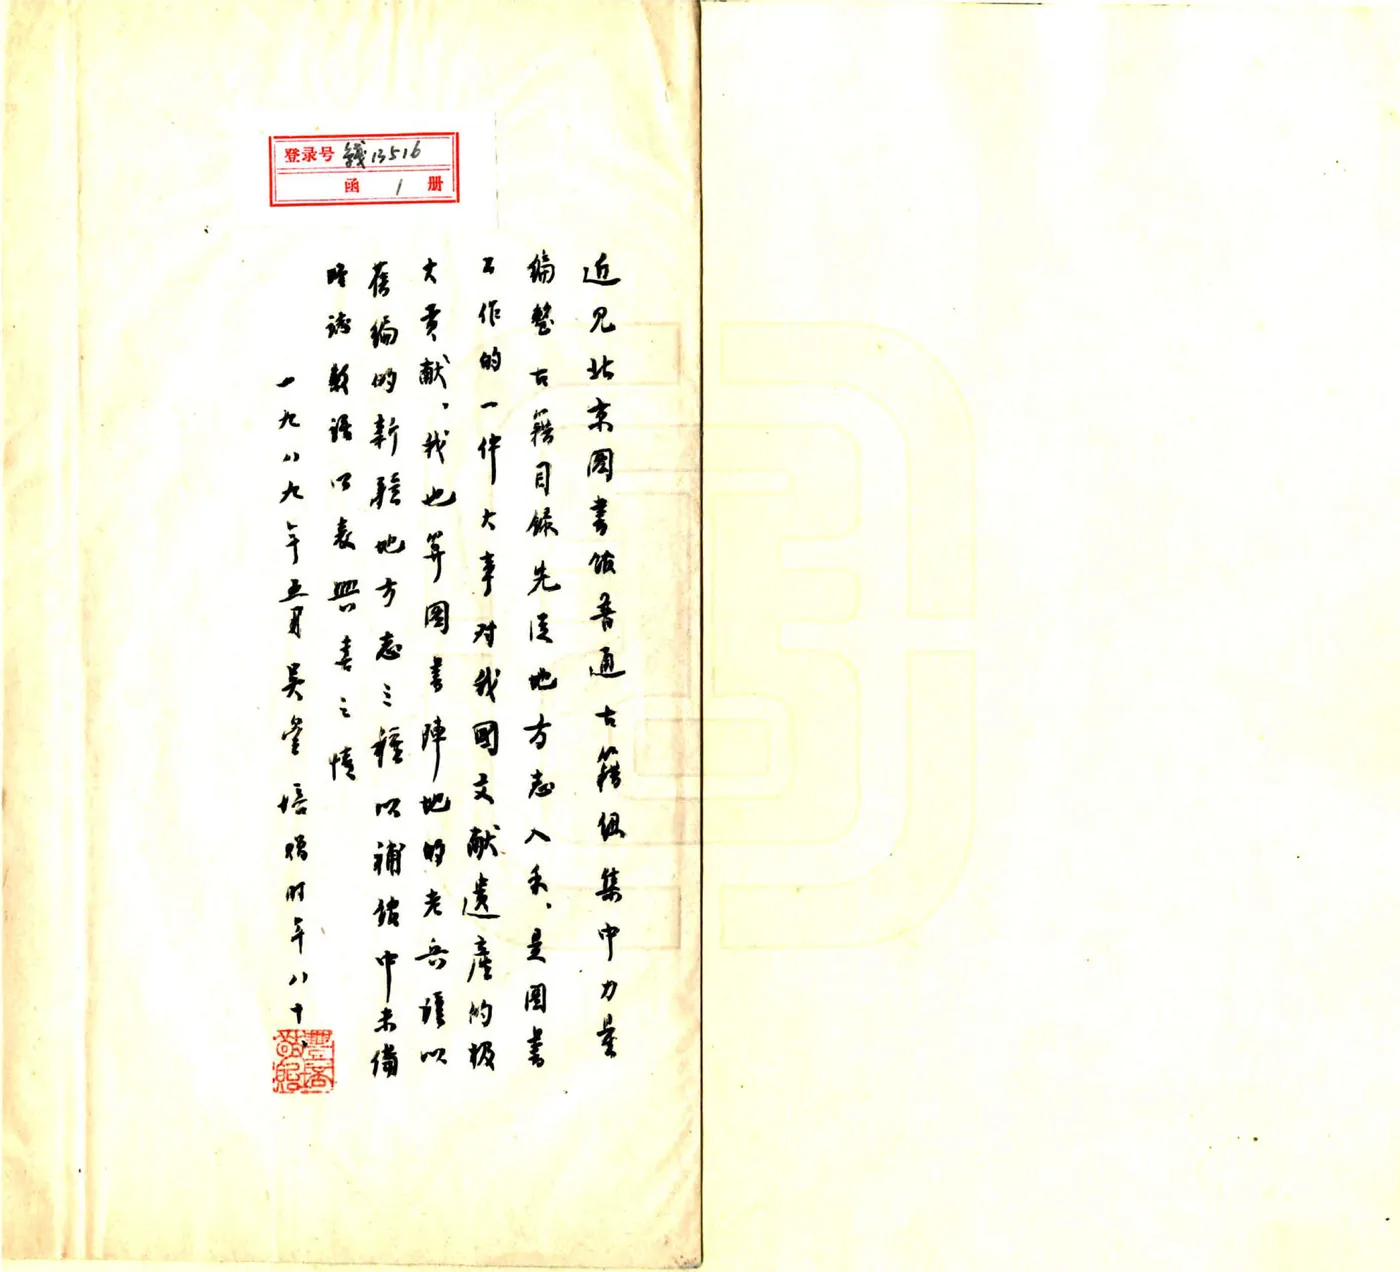 登录号 线13516
函 1 册
近见北京图书馆普通古籍组集中力量
编整古籍目录先从地方志入手、是图书
工作的一件大事对我国文献遗产的极
大贡献、我也算图书阵地的老兵谨以
旧编的新疆地方志三种以补馆中未备
时志数语以表兴喜之情
一九八九年五月吴丰培赠时年八十、